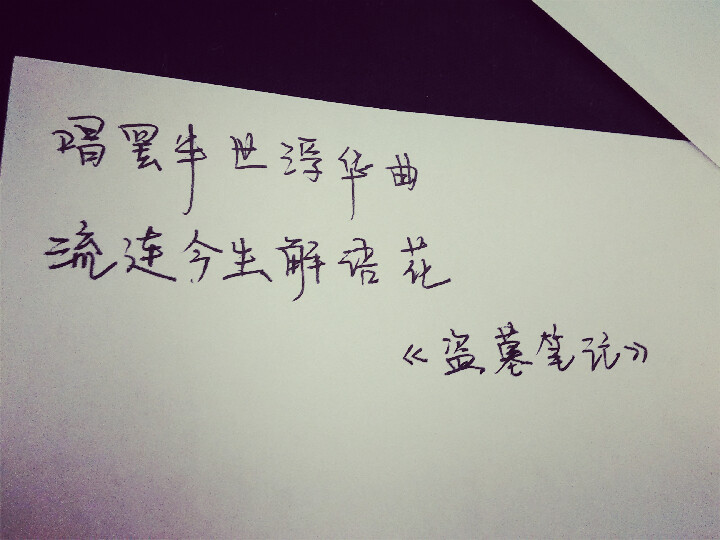 唱罢半世浮华曲
流连今生解语花
《盗墓笔记》